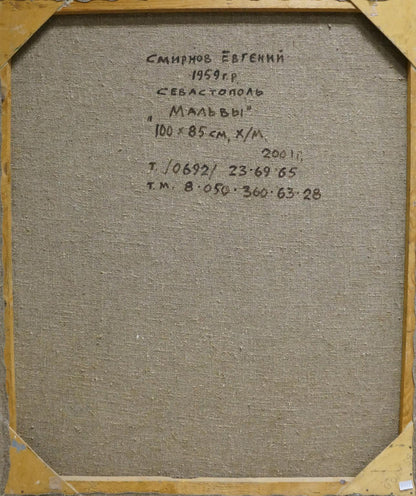 Смирнов Евгений
1959г.р.
Севастополь
„Мальвы"
100×85см, х/м.
2001г,
т. /0692/ 23·69·65
т.м. 8·050·360·63·28